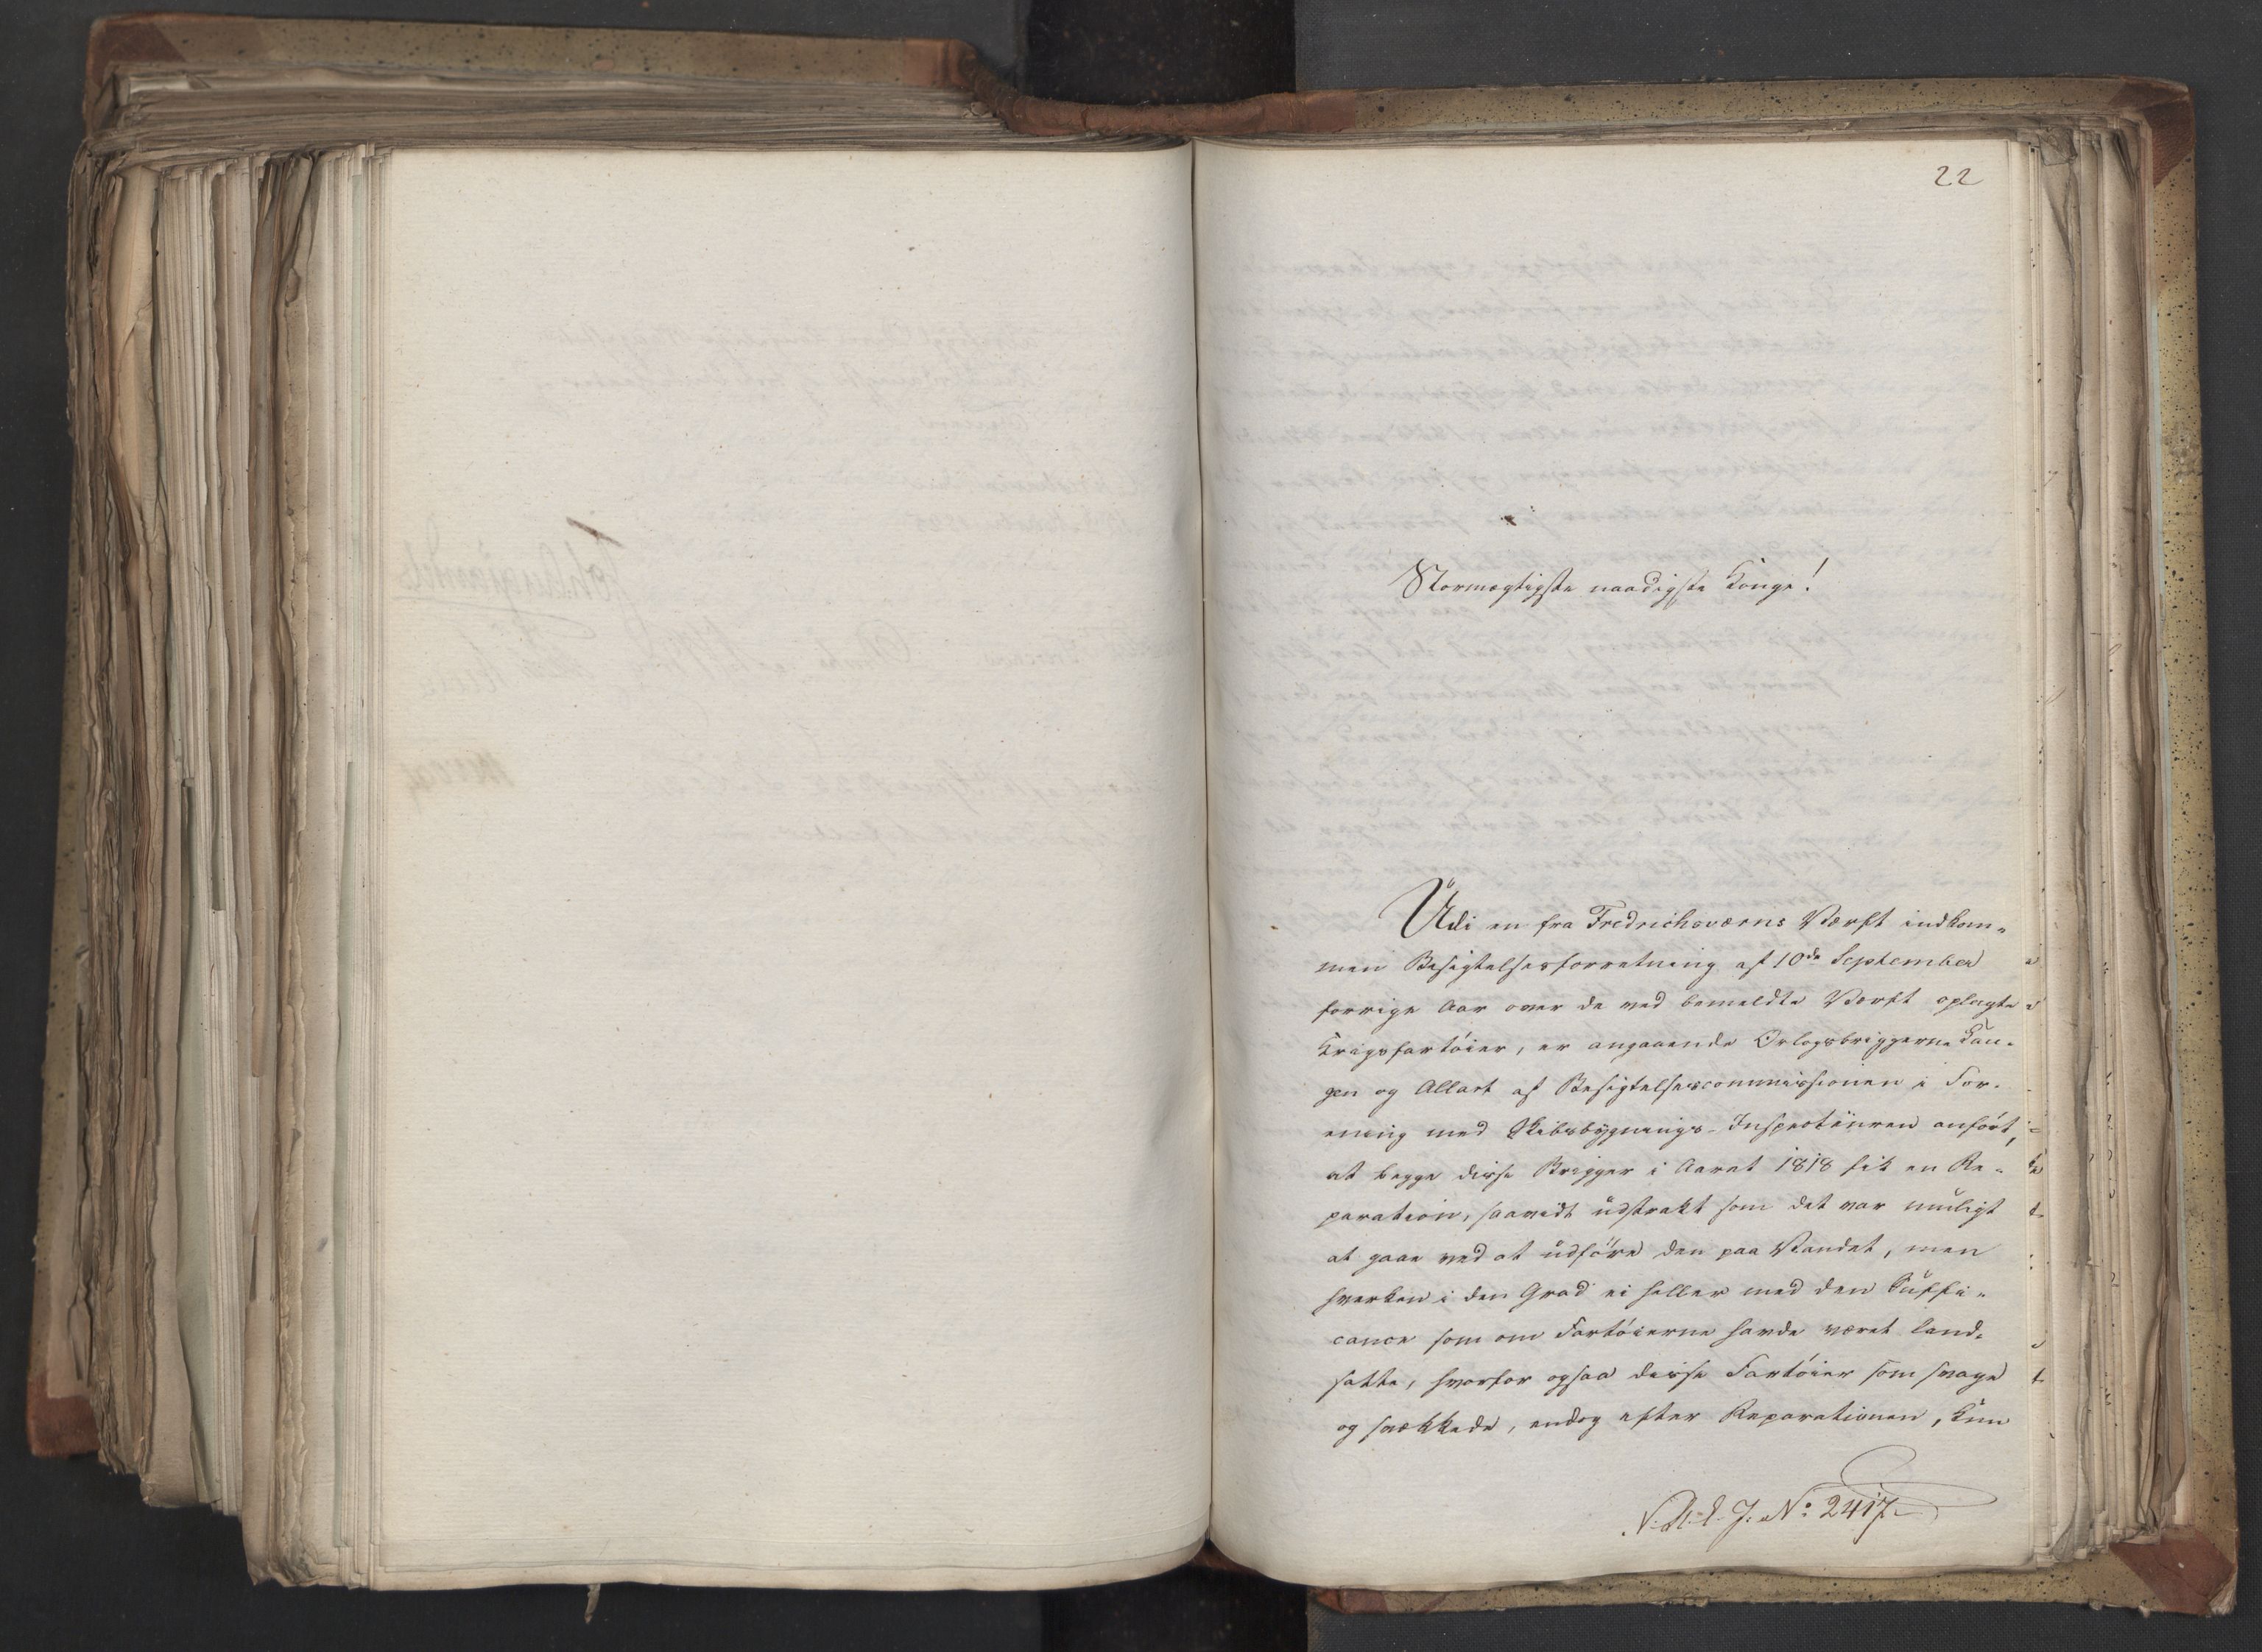 22
Stormægtigste naadigste Konge!
Udi en fra Fredrichsværns Værft indkom-
men Besigtelsesforretning af 10de September
forrige Aar over de ved bemeldte Værft oplagte
Krigsfartöier, er angaaende Orlogsbriggerne Lau-
gen og Allart af Besigtelsescommissionen i For-
ening med Skibsbygnings-Inspecteuren anfört,
at begge disse Brigger i Aaret 1818 fik en Re-
paration, saavidt udstrakt som det var muligt
at gaae ved at udföre den paa Vandet, men
hverken i den Grad ei heller med den Suffi-
cance som om Fartöierne havde været land-
satte, hvorfor ogsaa disse Fartöier som svage
og svækkede, endog efter Reparationen, kun
J. No 2417